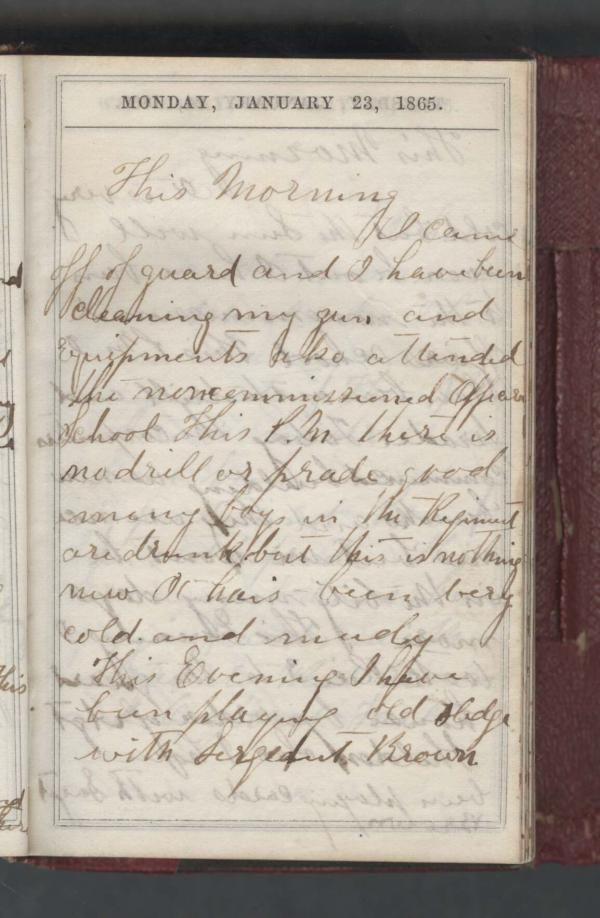 MONDAY, JANUARY 23, 1865.
This Morning
I came
off of guard and I have been
cleaning my gun and
Equipments also attended
the noncommissioned Officers
School This P.M. there is
no drill or prade good
many boys in the Regiment
are drunk but this is nothing
new It hais been very
cold and mudy
This Evening I have
been playing old sledge
with Sergeant Brown